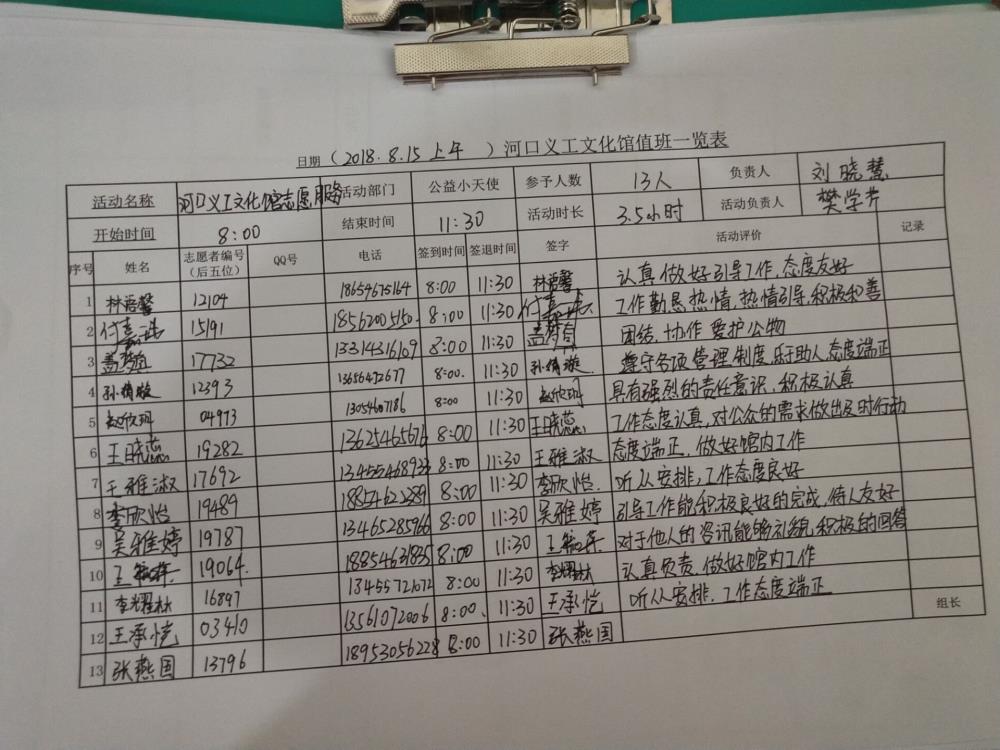 日期（2018.8.15上午）河口义工文化馆值班一览表
活动名称 河口义工文化馆志愿服务 活动部门 公益小天使 参予人数 13人 负责人 刘晓慧
开始时间 8:00 结束时间 11:30 活动时长 3.5小时 活动负责人 樊学芹
序号 姓名 志愿者编号（后五位） QQ号 电话 签到时间 签退时间 签字 活动评价 记录
1 林语馨 12104 18654675164 8:00 11:30 林语馨 认真做好引导工作,态度友好
2 15191 18562005150 8:00 11:30 工作勤恳热情,热情引导,积极和善
3 17732 13314316109 8:00 11:30 团结、协作 爱护公物
4 12393 13656472677 8:00. 11:30 遵守各项管理制度,乐于助人,态度端正
5 赵欣玥 04973 13054607186 8:00 11:30 赵欣玥 具有强烈的责任意识,积极认真
6 王晓蕊 19282 13625465676 8:00 11:30 王晓蕊 工作态度认真,对公众的需求做出及时行动
7 王雅淑 17692 13455468923 8:00 11:30 王雅淑 态度端正,做好馆内工作
8 李欣怡 19489 1885462289 8:00 11:30 李欣怡. 听从安排,工作态度良好
9 吴雅婷 19787 13465285966 8:00 11:30 吴雅婷 引导工作能积极良好的完成,待人友好
10 19064. 18854631835 8:00 11:30 对于他人的咨讯能够礼貌,积极的回答
11 李耀林 16897 13455721672 8:00 11:30 李耀林 认真负责,做好馆内工作
12 王承恺 03410 13561072006 8:00 11:30 王承恺 听从安排,工作态度端正
13 张燕国 13796 18953056228 8:00 11:30 张燕国
组长